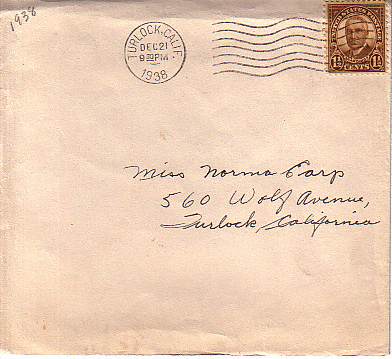 1938
TURLOCK, CALIF.
DEC 21
9 30 PM
1938
UNITED STATES POSTAGE
1½ CENTS 1½
Miss Norma Earp
560 Wolf Avenue,
Turlock, California